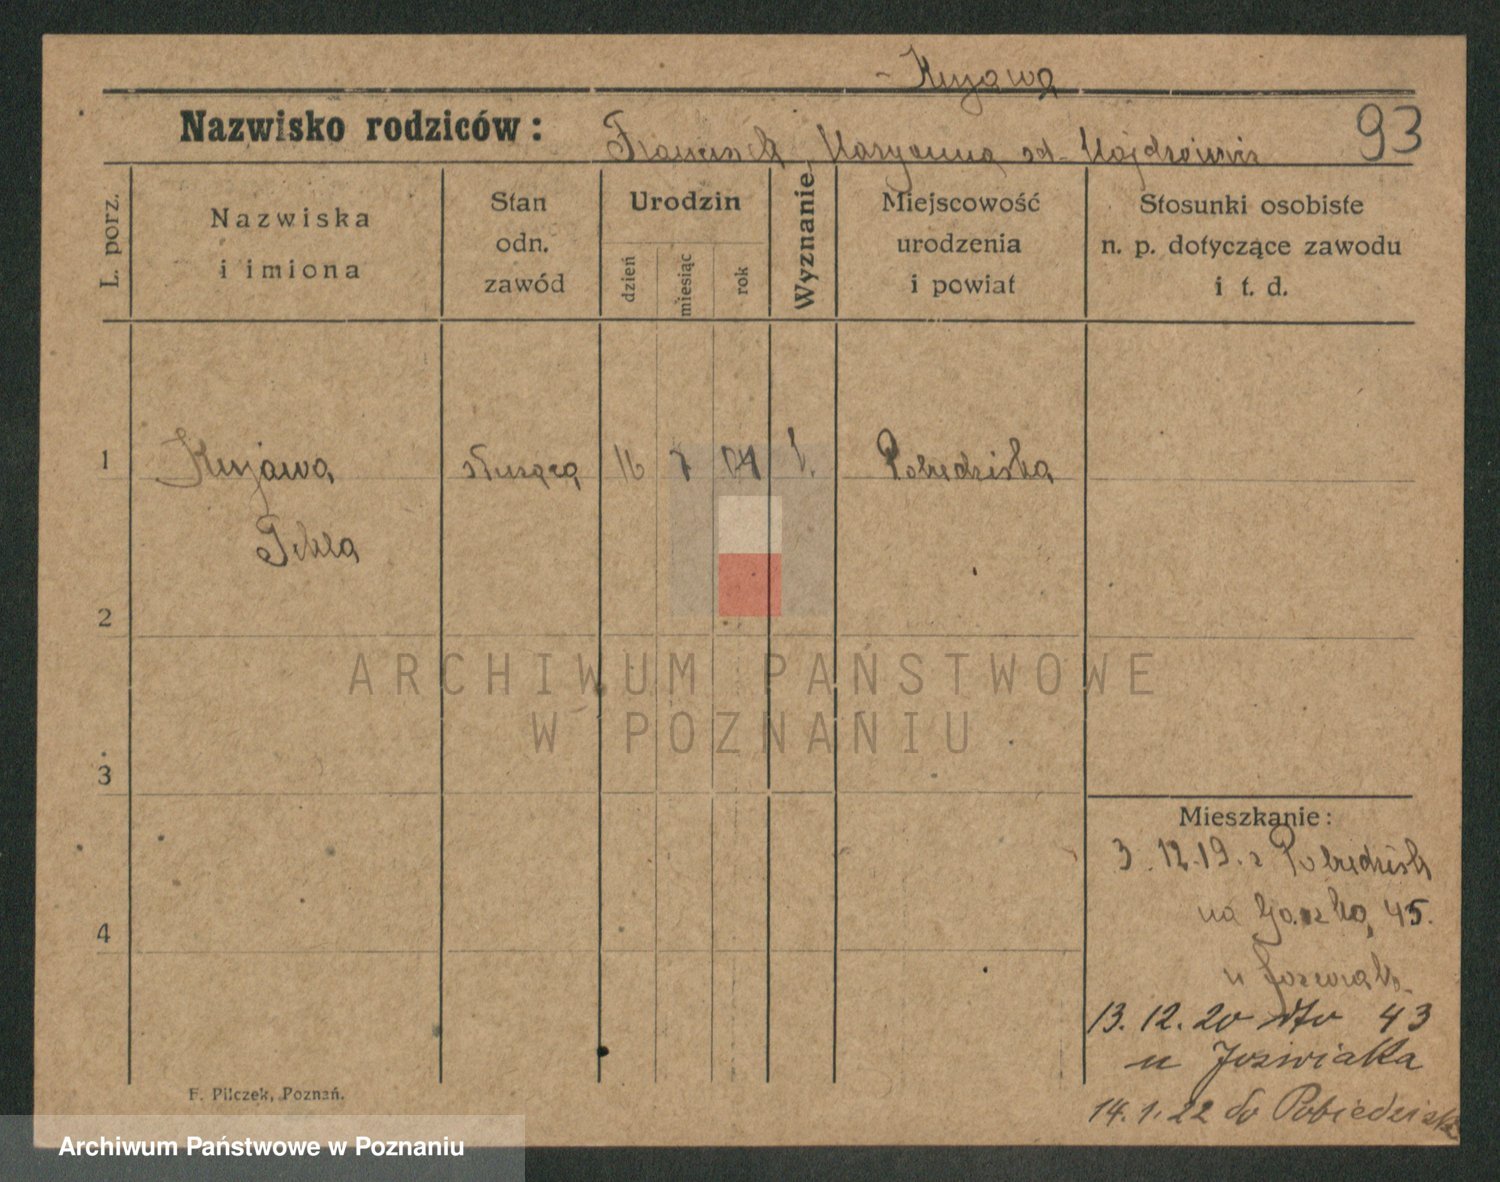 Kujawa
Nazwisko rodziców: Franciszek Maryanna od 93
L. porz.
Nazwiska i imiona
Stan odn. zawód
Urodzin
dzień miesiąc rok
Wyznanie
Miejscowość urodzenia i powiat
Stosunki osobiste n. p. dotyczące zawodu i t. d.
1 Kujawa służąca 16 7 04 k. Pobiedziska
Tekla
2
ARCHIWUM PAŃSTWOWE
W POZNANIU
3
Mieszkanie:
3.12.19. z Pobiedzisk
na 45.
4
u
13. 12. 20 dto 43
u Jozwiaka
14. 1. 22 do Pobiedzisk
F. Pilczek, Poznań.
Archiwum Państwowe w Poznaniu